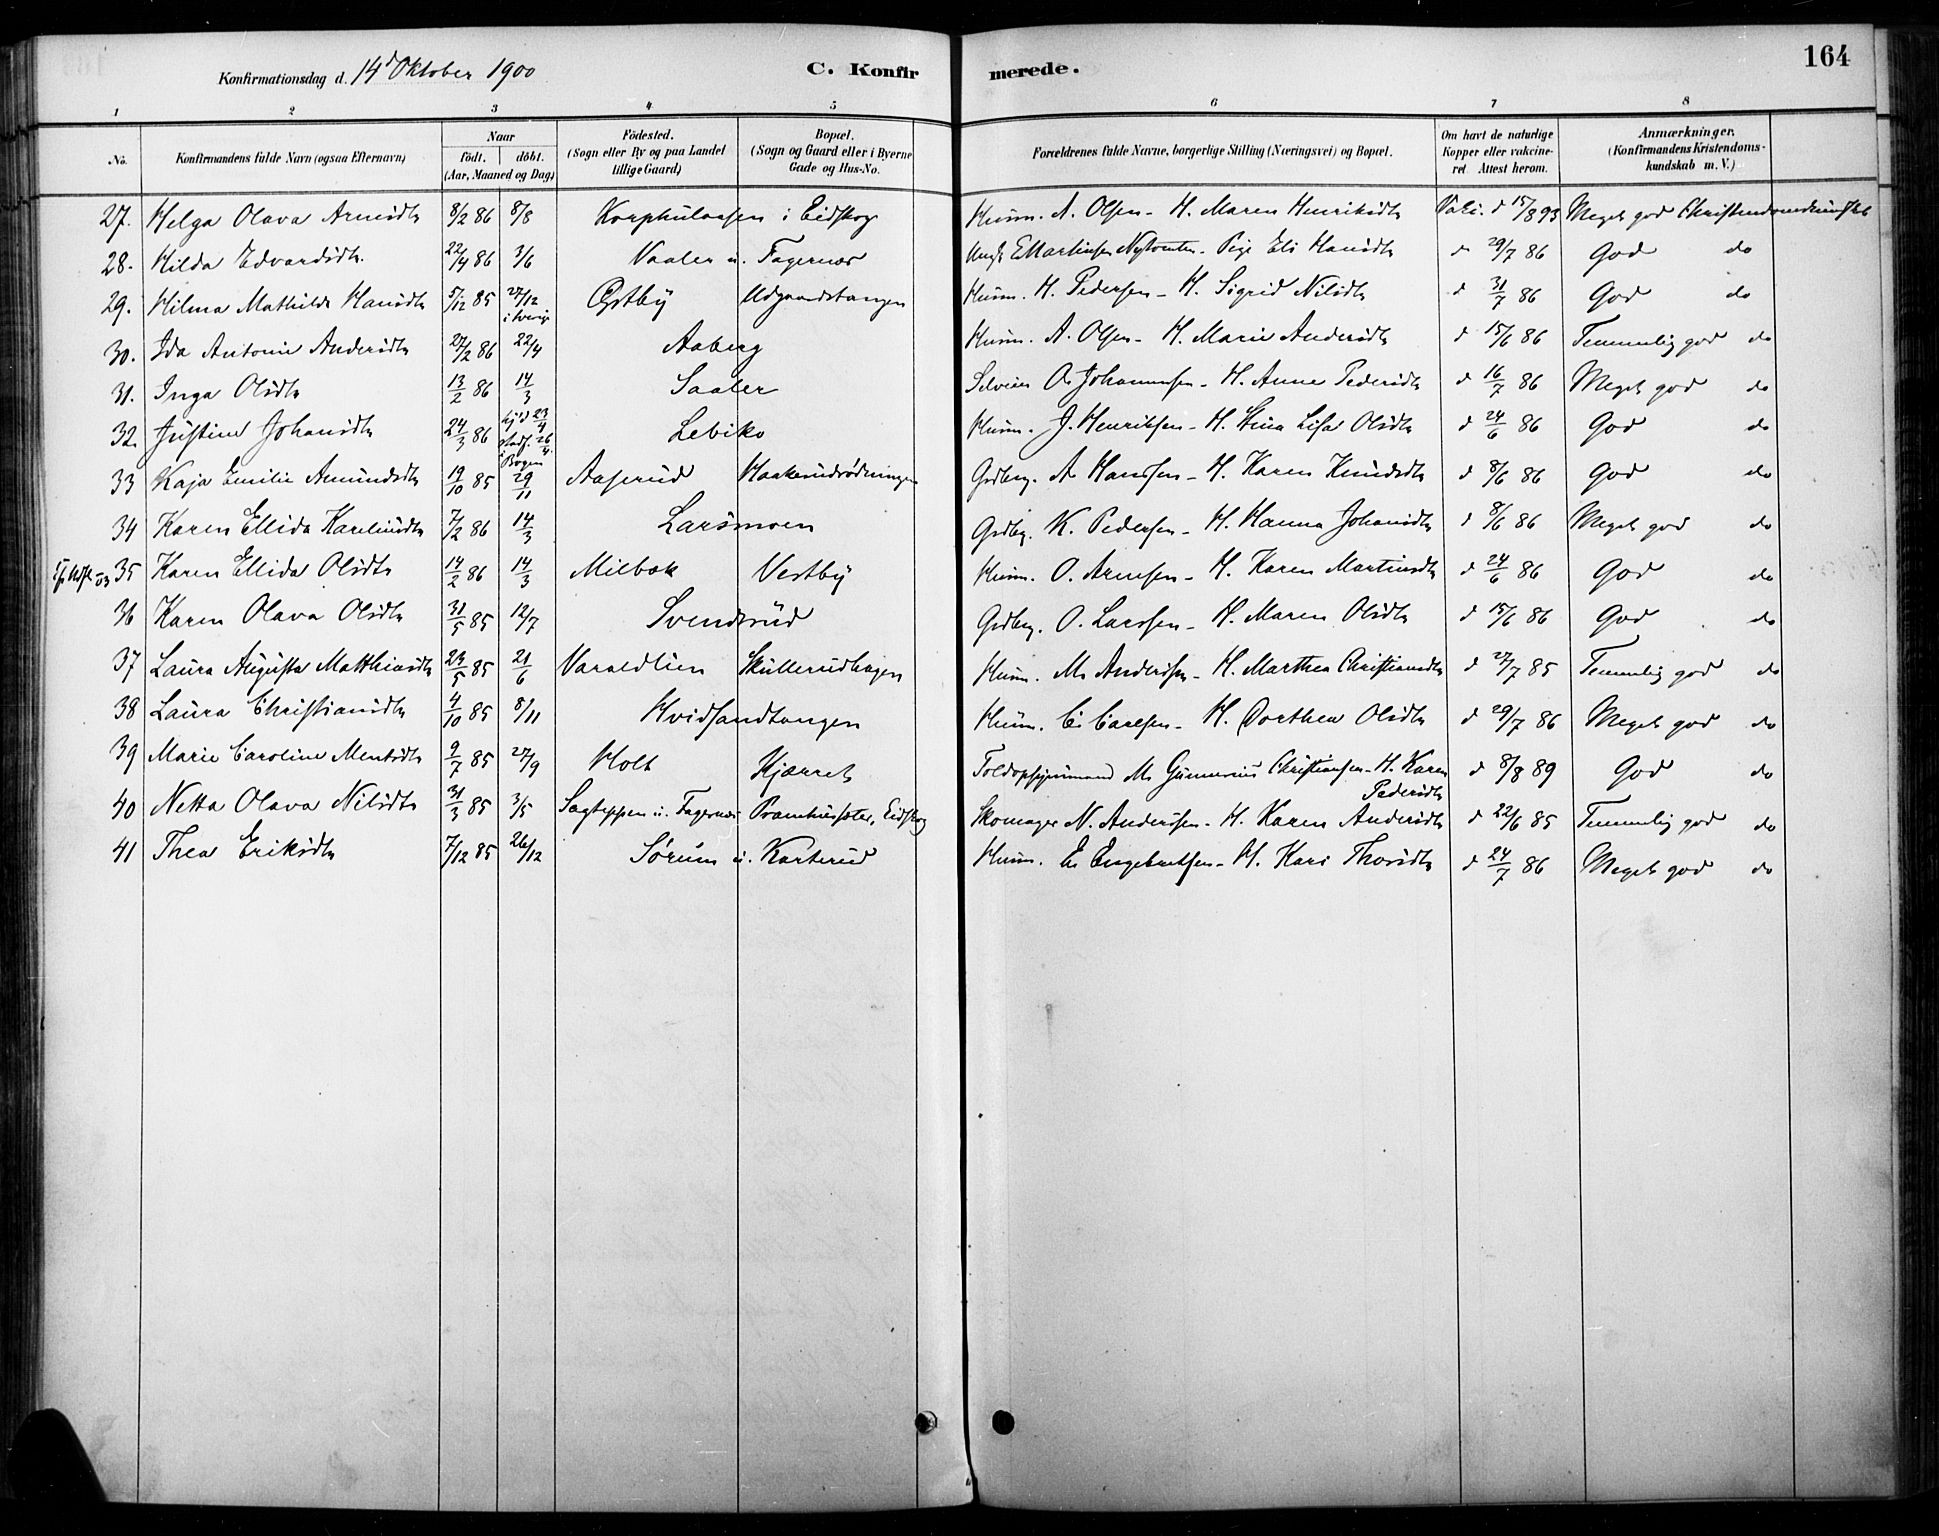 Konfirmationsdag d. 14d Oktober 1900 C. Konfir merede. 164
1 2 3 4 5 6 7 8
No. Konfirmandens fulde Navn (ogsaa Efternavn) Naar födt. döbt. (Aar, Maaned og Dag) Födested. (Sogn eller By og paa Landet tillige Gaard) Bopæl. (Sogn og Gaard eller i Byerne Gade og Hus-No. Forældrenes fulde Navne, borgerlige Stilling (Næringsvei) og Bopæl. Om havt de naturlige Kopper eller vakcineret. Attest herom. Anmærkninger. (Konfirmandens Kristendomskundskab m. V.)
27. Helga Olava Arnesdtr 8/2 86 8/8 i Eidskog Huusm. A. Olsen - H. Maren Henriksdtr Vakc. d 15/8 93 Meget god Christendomskundskab
28. Hilda Edvardsdtr. 22/4 86 3/6 Vaaler u. Fagernæs E Martinsen - Pige Eli Hansdtr d 29/7 86 God do
29. Hilma Mathilde Hansdtr 5/12 85 27/12 i Sverige Østby Udgaardstangen Huusm. H. Pedersen - H. Sigrid Nilsdtr d 31/7 86 God do
30. Ida Antonie Andersdtr 27/2 86 22/4 Aaberg Huusm. A. Olsen - H. Marie Andersdtr d 15/6 86 Temmelig god do
31. Inga Olsdtr 13/2 86 14/3 Saaler Selveier O. Johannesen - H. Anne Pedersdtr d 16/7 86 Meget god do
32. Justine Johansdtr 24/3 86 hjd 23/4 stadf. 26/4 i Bogen Lebiko Huusm. J. Henriksen - H. Stina Lisa Olsdtr d 24/6 86 God do
33 Kaja Emilie Amundsdtr 19/10 85 29/11 Aaserud Haakerudrødningen Grdbrg. A Hanssen - H. Karen Knudsdtr d 8/6 86 God do
34 Karen Ellida Kareliusdtr 7/2 86 14/3 Larsmoen Grdbrg. K. Pedersen - H. Hanna Johansdtr d 8/6 86 Meget god do
35 Karen Ellida Olsdtr 14/2 86 14/3 Milbak Vestby Huusm. O. Arnesen - H. Karen Martinsdtr d 24/6 86 God do
36 Karen Olava Olsdtr 31/5 85 12/7 Svendsrud Grdbrg. O. Larssen - H. Maren Olsdtr d 15/6 86 God do
37 Laura Augusta Matthiasdtr 23/5 85 21/6 Varaldlien Skullerudhagen Huusm. M. Anderssen - H. Marthea Christiansdtr d 27/7 85 Temmelig god do
38 Laura Christiansdtr 4/10 85 8/11 Hvidsandtangen Huusm. C. Carlsen - H. Dorthea Olsdtr d 29/7 86 Meget god do
39 Marie Caroline Mentsdtr 9/7 85 27/9 Holt Kjærret Toldopsynsmand M. Gunnerius Christiansen - H. Karen Pedersdtr d 8/8 89 God do
40 Netta Olava Nilsdtr 31/3 85 3/5 Sagteppen u. Fagernæs Pramhussæter, Eidskog Skomager N. Anderssen - H. Karen Andersdtr d 22/6 85 Temmelig god do
41 Thea Eriksdtr 7/12 85 26/12 Sørum u. Karterud Huusm. E. Engebretsen - H. Kari Thorsdtr d 24/7 86 Meget god do